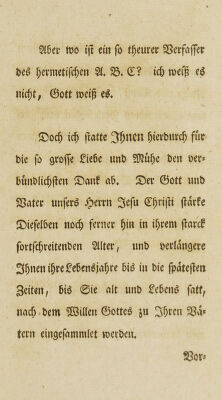 Aber wo ist ein so theurer Verfasser
des hermetischen A. B. C? ich weiß es
nicht, Gott weiß es.
Doch ich statte Ihnen hierdurch für
die so grosse Liebe und Mühe den ver-
bündlichsten Dank ab. Der Gott und
Vater unsers Herrn Jesu Christi stärke
Dieselben noch ferner hin in ihrem starck
fortschreitenden Alter, und verlängere
Ihnen ihre Lebensjahre bis in die spätesten
Zeiten, bis Sie alt und Lebens satt,
nach dem Willen Gottes zu Ihren Vä-
tern eingesammlet werden.
Vor-